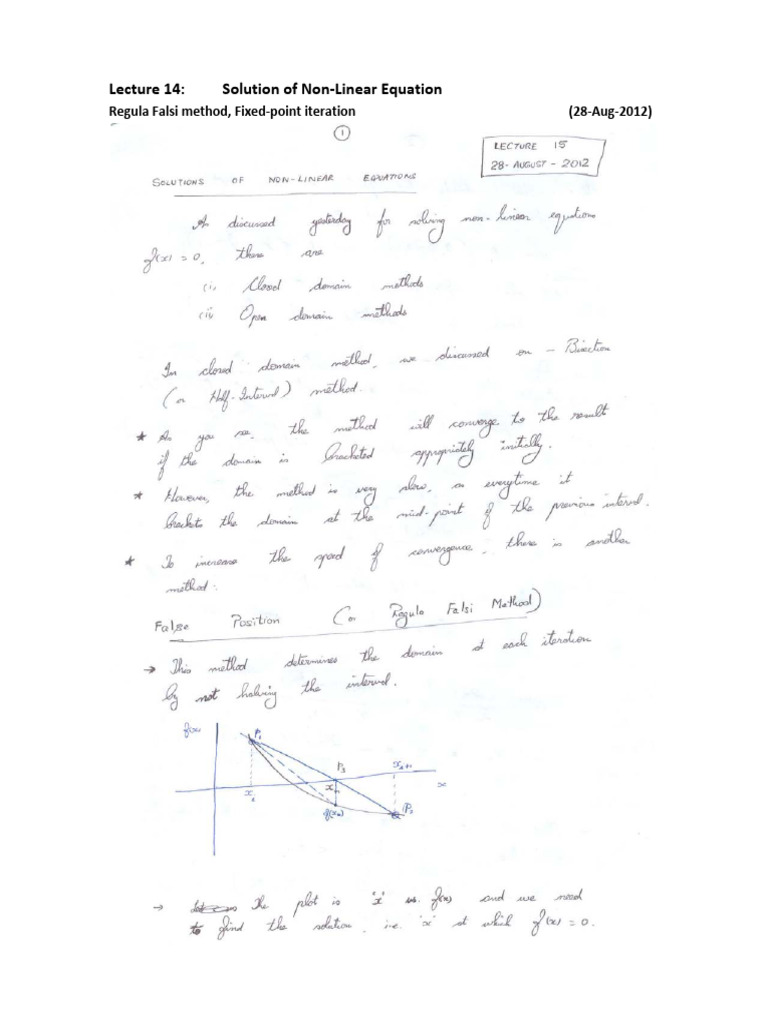 Lecture 14: Solution of Non-Linear Equation
Regula Falsi method, Fixed-point iteration (28-Aug-2012)
1
LECTURE 15
28-AUGUST-2012
SOLUTIONS OF NON-LINEAR EQUATIONS
As discussed yesterday for solving non-linear equations
f(x) = 0, there are
(i, Closed domain methods
(ii Open domain methods
In closed domain method, we discussed on - Bisection
(or Half-Interval) method.
* As you see, the method will converge to the result
if the domain is bracketed appropriately initially.
* However, the method is very slow, as everytime it
brackets the domain at the mid-point of the previous interval.
* To increase the speed of convergence, there is another
method:
False Position (or Regula Falsi Method)
→ This method determines the domain at each iteration
by not halving the interval.
f(x)
P₁
P₃
x
P₂
f(xₘ)
→ The plot is 'x' vs. f(x) and we need
to find the solution, i.e. 'x' at which f(x) = 0.